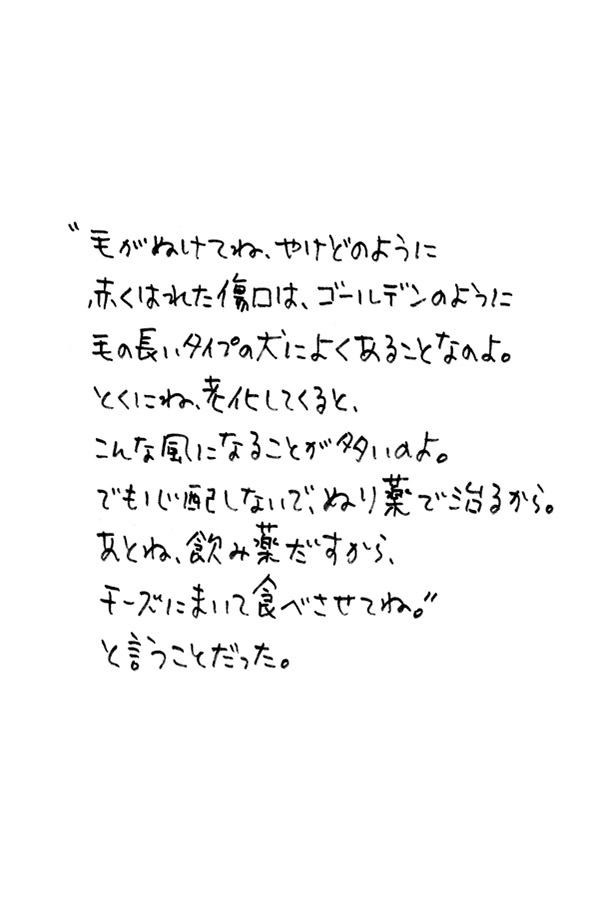 "毛がぬけてね、やけどのように
赤くはれた傷口は、ゴールデンのように
毛の長いタイプの犬によくあることなのよ。
とくにね、老化してくると、
こんな風になることが多いのよ。
でも心配しないで、ぬり薬で治るから。
あとね、飲み薬だすから、
チーズにまいて食べさせてね。"
と言うことだった。